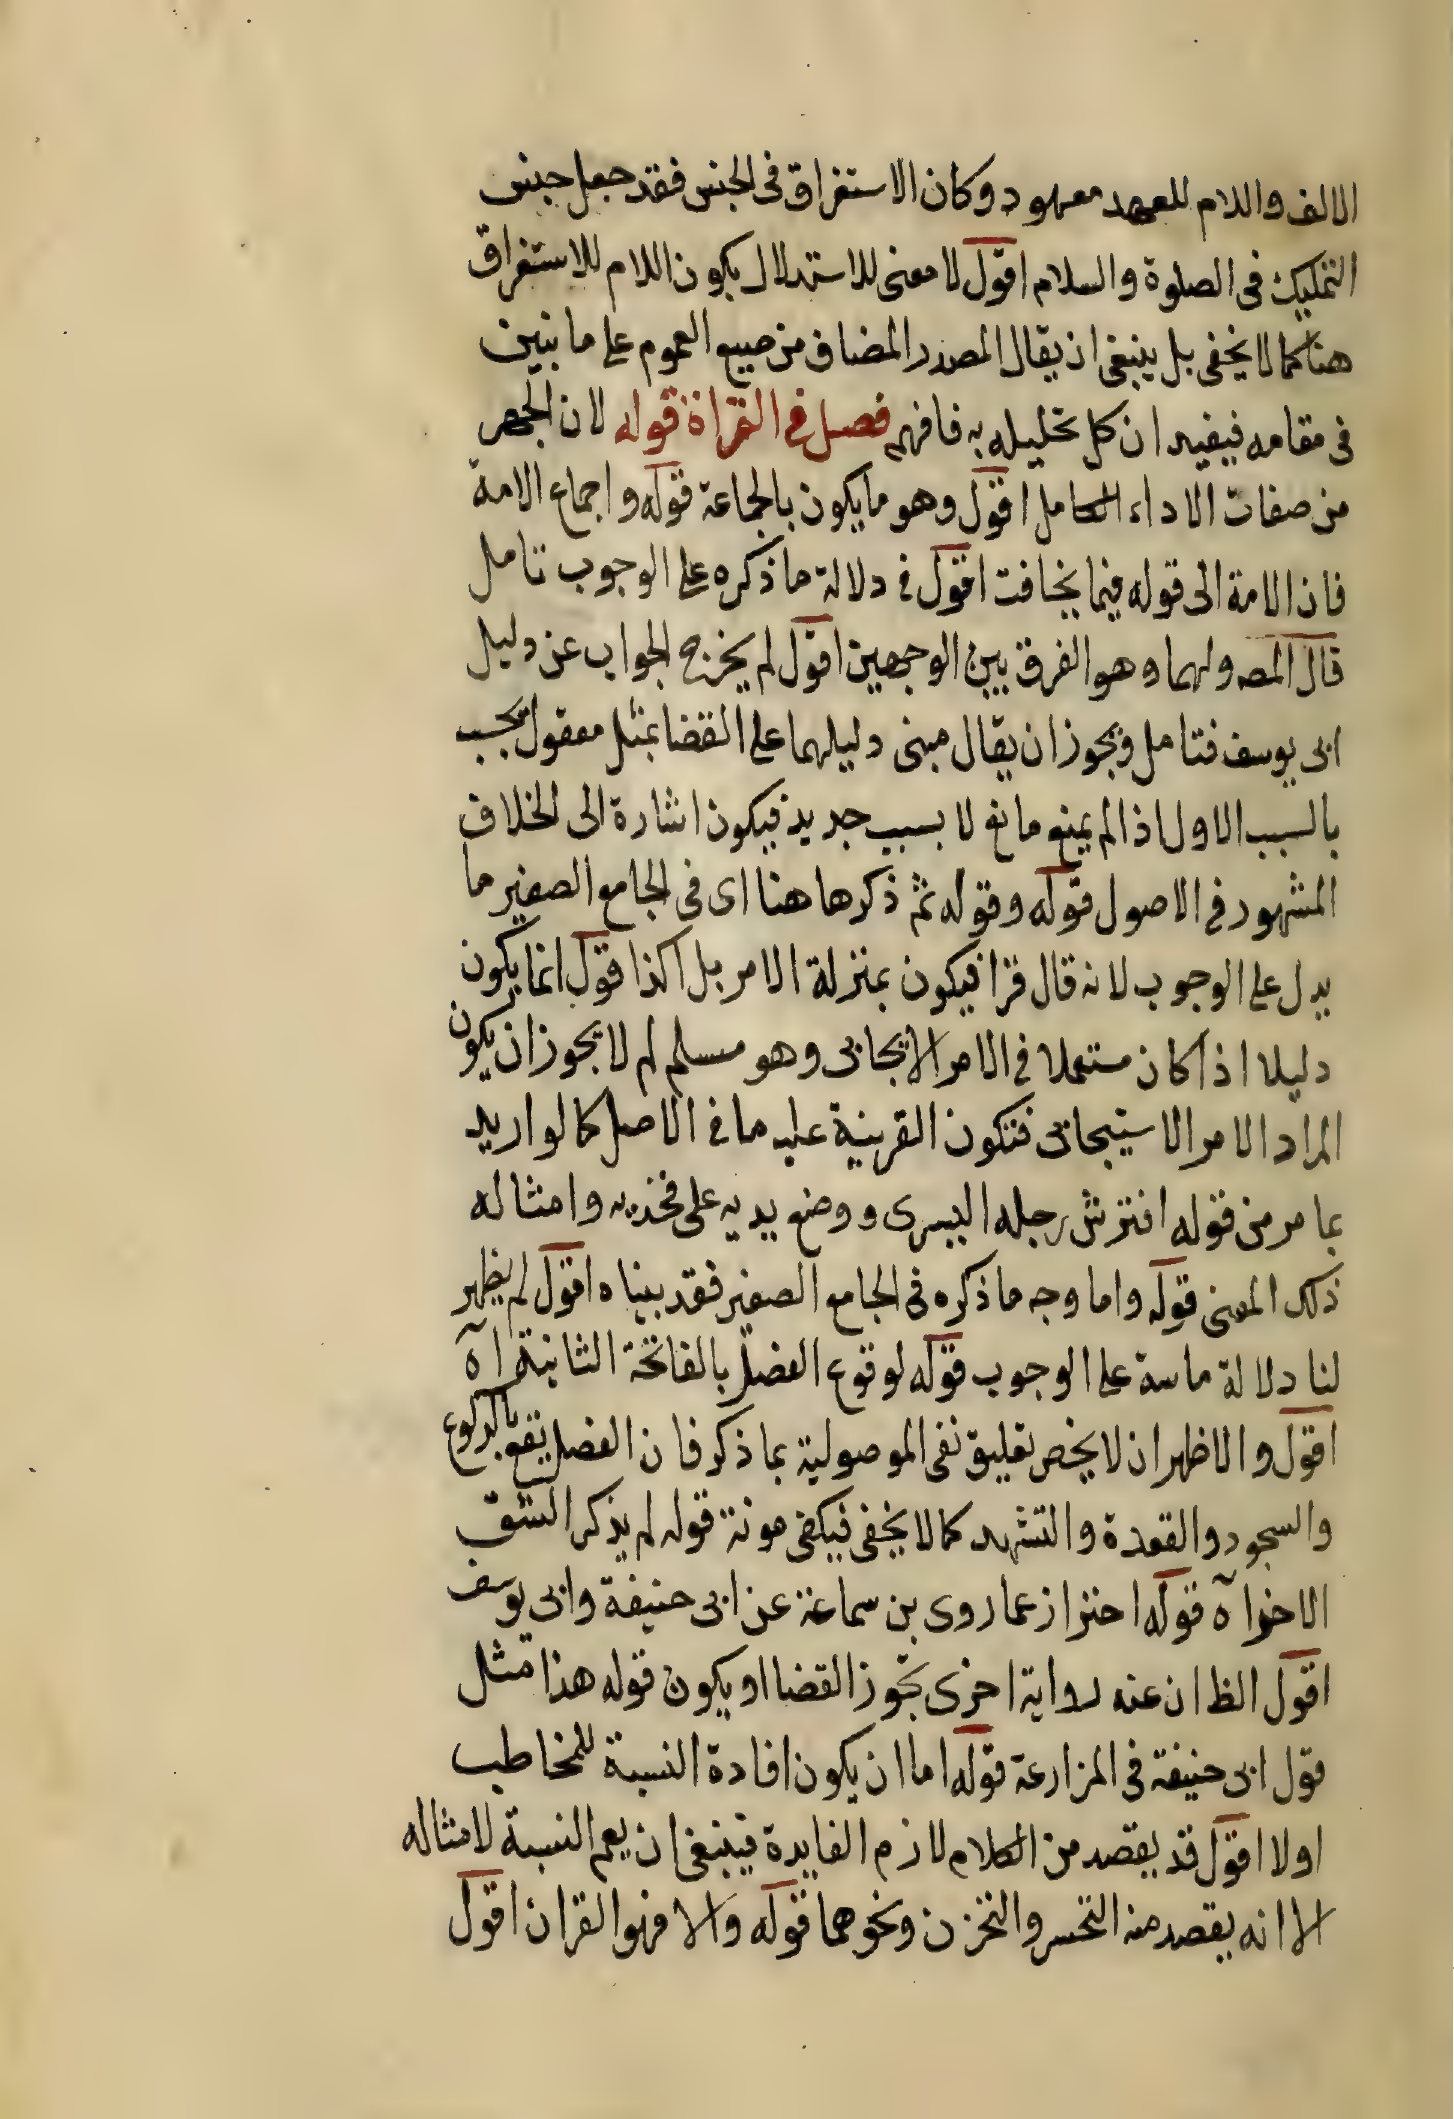 الالف واللام للعهد معهود وكان الاستغراق فى الجنس فقد جعل جنس
التمليك فى الصلوة والسلام اقول لا معنى للاستدلال بكون اللام للاستغراق
هنا كما لا يخفى بل ينبغى ان يقال المصدر المضاف من صيع العموم على ما نبين
فى مقامه فيفيد ان كل تحليله به فافهم فصل فى القراة قوله لان الجهر
من صفات الاداء الكامل اقول وهو ما يكون بالجماعة قوله واجماع الامة
فان الامة الى قوله فيما يخافت اقول فى دلالة ما ذكره على الوجوب تامل
قال المصه ولهما وهو الفرق بين الوجهين اقول لم يخرج الجواب عن دليل
ابى يوسف فتامل ويجوز ان يقال مبنى دليلهما على القضا بمثل معقول يجب
بالسبب الاول اذا لم يمنع مانع لا بسبب جديد فيكون اشارة الى الخلاف
المشهور فى الاصول قوله وقوله ثم ذكرها هنا اى فى الجامع الصغير ما
يدل على الوجوب لانه قال قرا فيكون بمنزلة الامر بل اكذا قول انما يكون
دليلا اذا كان مستعملا فى الامر الايجابى وهو مسلم لم لا يجوز ان يكون
المراد الامر الاستحبابى فتكون القرينة عليه ما فى الاصل كما لو اريد
بما مر من قوله افترش رجله اليسرى ووضع يديه على فخذيه وامثاله
ذلك المعنى قوله واما وجه ما ذكره فى الجامع الصغير فقد بيناه اقول لم يظهر
لنا دلالة ماسة على الوجوب قوله لوقوع الفصل بالفاتحة الثانية اه
اقول والاظهر ان لا يخص تعليق نفى الموصولية بما ذكر فان الفصل يقع بالركوع
والسجود والقعدة والتشهد كما لا يخفى فيكفى مونة قوله لم يذكر الشق
الاخر اه قوله احتراز عما روى بن سماعة عن ابى حنيفة وابى يوسف
اقول الظ ان عنه رواية اخرى بجوز القضا او يكون قوله هذا مثل
قول ابى حنيفة فى المزارعة قوله اما ان يكون افادة النسبة للمخاطب
اولا اقول قد يقصد من الكلام لازم الفايدة فينبغى ان يعم النسبة لامثاله
الا انه يقصد منه التحسر والتحزن ونحوهما قوله والا فهو القران اقول